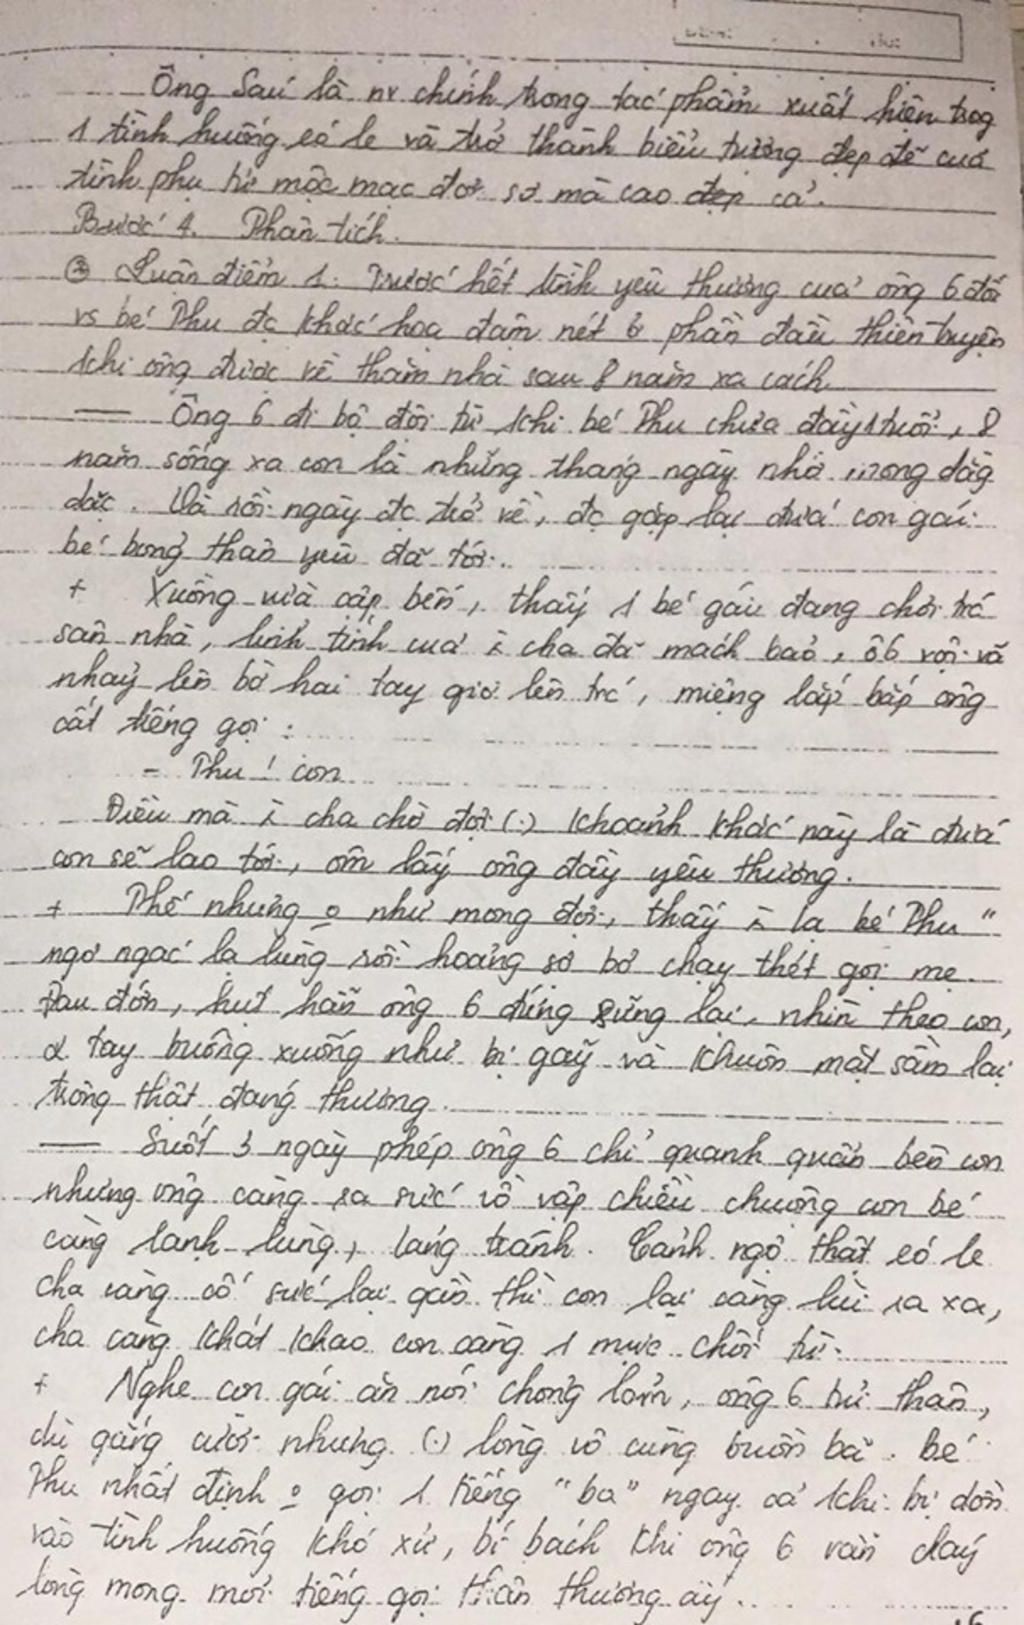 Ông Sáu là nv chính trong tác phẩm xuất hiện trog
1 tình huống éo le và trở thành biểu tượng đẹp đẽ của
tình phụ tử mộc mạc đơn sơ mà cao đẹp cả.
Bước 4. Phân tích.
Luận điểm 1: Trước hết tình yêu thương của ông 6 đối
vs bé Thu đc khắc họa đậm nét ở phần đầu thiên truyện
khi ông được về thăm nhà sau 8 năm xa cách
— Ông 6 đi bộ đội từ khi bé Thu chưa đầy 1 tuổi, 8
năm sống xa con là những tháng ngày nhớ mong dằg
dặc. Và rồi ngày đc trở về, đc gặp lại đứa con gái
bé bỏng thân yêu đã tới..
+ Xuồng vừa cập bến, thấy 1 bé gái đang chơi trc
sân nhà, linh tính của ng cha đã mách bảo, ô6 vội vã
nhảy lên bờ hai tay giơ lên trc, miệng lắp bắp ông
cất tiếng gọi:
- Thu! con
Điều mà ng cha chờ đợi (.) khoảnh khắc này là đứa
con sẽ lao tới, ôm lấy ông đầy yêu thương.
+ Thế nhưng o như mong đợi, thấy ng lạ bé Thu "
ngơ ngác lạ lùng rồi hoảng sợ bỏ chạy thét gọi mẹ.
Đau đớn, hụt hẫn ông 6 đứng sững lại, nhìn theo con,
2 tay buông xuống như bị gãy và khuôn mặt sầm lại
trông thật đáng thương.
— Suốt 3 ngày phép ông 6 chỉ quanh quẩn bên con
nhưng ông càng ra sức vỗ vập chiều chuộng con bé
càng lạnh lùng, lảng tránh. Cảnh ngộ thật éo le
cha càng cố sức lại gần thì con lại càng lùi ra xa,
cha càng khát khao con càng 1 mực chối từ.
+ Nghe con gái ăn nói chỏng lỏn, ông 6 tủi thân,
dù gắng cười nhưng (.) lòng vô cùng buồn bã. Bé
Thu nhất định o gọi 1 tiếng "ba" ngay cả khi bị dồn
vào tình huống khó xử, bí bách khi ông 6 vẫn đáy
lòng mong mỏi tiếng gọi thân thương ấy..